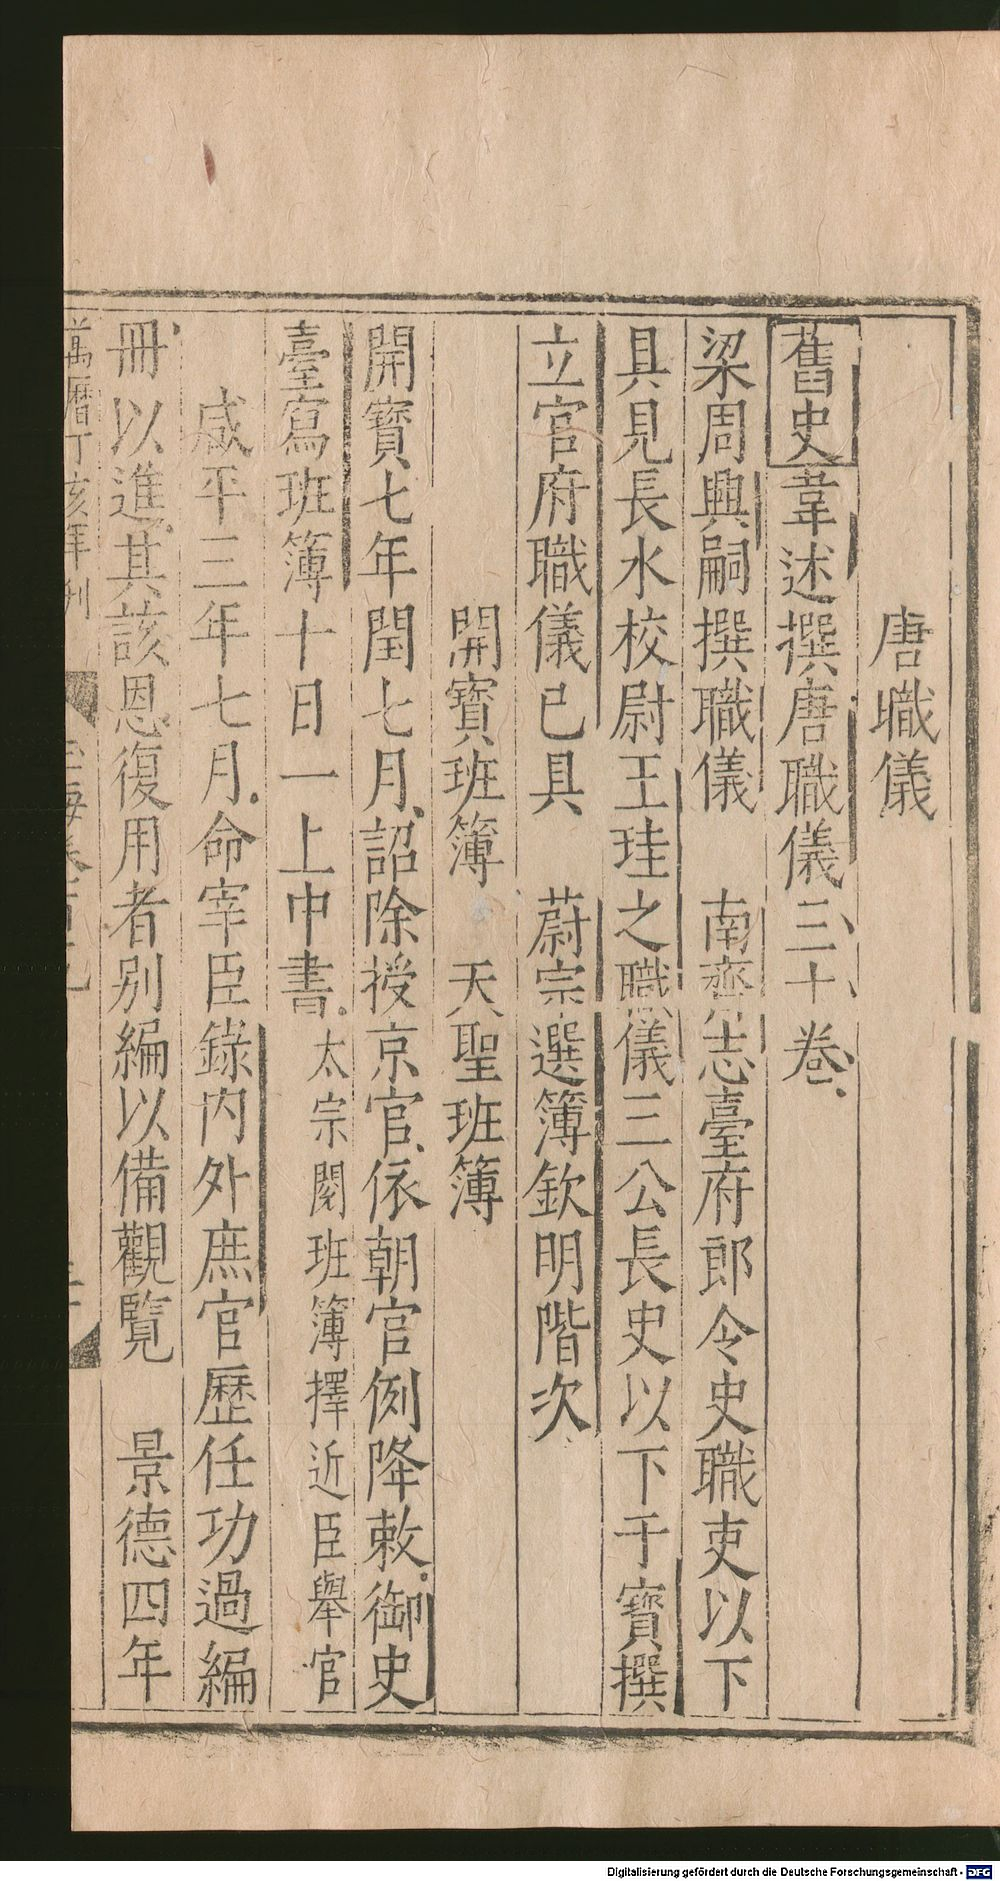 唐職儀
舊史韋述撰唐職儀三十卷
梁周興嗣撰職儀　南齊志臺府郎令史職吏以下
具見長水校尉王珪之職儀三公長史以下于寶撰
立官府職儀已具　蔚宗選簿欽明階次
開寶班簿　天聖班簿
開寶七年閏七月詔除授京官依朝官例降敕御史
臺寫班簿十日一上中書太宗閱班簿擇近臣舉官
咸平三年七月命宰臣錄內外庶官歷任功過編
冊以進其該恩復用者別編以備觀覽　景德四年
萬曆丁亥年刊
玉海卷百九
Digitalisierung gefördert durch die Deutsche Forschungsgemeinschaft - DFG